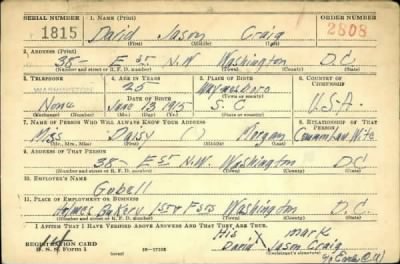 SERIAL NUMBER 1. NAME (Print) ORDER NUMBER
1815 David Jason Craig 2808
(First) (Middle) (Last)
2. ADDRESS (Print)
38- E St N.W. Washington D.C.
(Number and street or R. F. D. number) (Town) (County) (State)
3. TELEPHONE 4. AGE IN YEARS 5. PLACE OF BIRTH 6. COUNTRY OF CITIZENSHIP
WASHINGTON 25 Waynesboro
DATE OF BIRTH (Town or county)
None June 13 1915 S.C. U.S.A.
(Exchange) (Number) (Mo.) (Day) (Yr.) (State or country)
7. NAME OF PERSON WHO WILL ALWAYS KNOW YOUR ADDRESS 8. RELATIONSHIP OF THAT PERSON
Miss Daisy ( ) Morgan Common Law Wife
(Mr., Mrs., Miss) (First) (Middle) (Last)
9. ADDRESS OF THAT PERSON
38- E ST N.W. Washington DC
(Number and street or R. F. D. number) (Town) (County) (State)
10. EMPLOYER'S NAME
11. PLACE OF EMPLOYMENT OR BUSINESS
Holmes Bakery 1st & F Sts Washington D.C.
(Number and street or R. F. D. number) (Town) (County) (State)
I AFFIRM THAT I HAVE VERIFIED ABOVE ANSWERS AND THAT THEY ARE TRUE.
His X mark
REGISTRATION CARD David Jason Craig
D. S. S. Form 1 (over) 16-17105